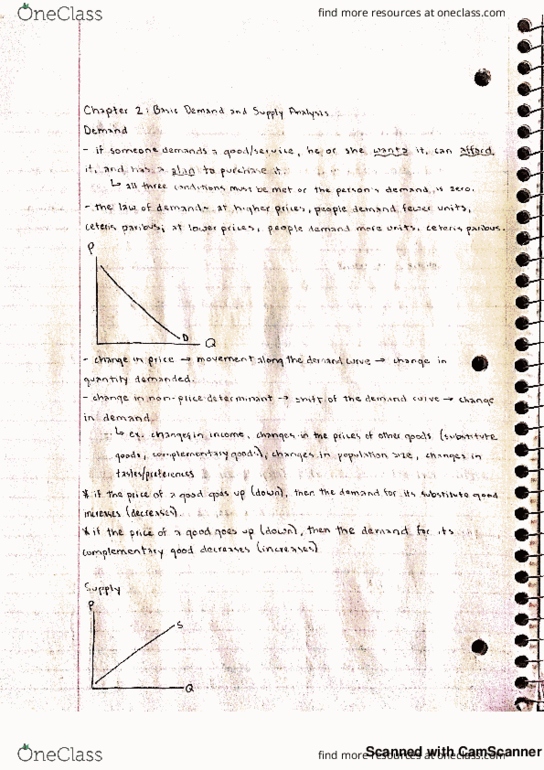 OneClass
find more resources at oneclass.com
Chapter 2: Basic Demand and Supply Analysis
Demand
- if someone demands a good/service, he or she wants it, can afford
it, and has a plan to purchase it.
↳ all three conditions must be met or the person's demand is zero.
- the law of demand - at higher prices, people demand fewer units,
ceteris paribus; at lower prices, people demand more units, ceteris paribus.
P
D
Q
- change in price → movement along the demand curve → change in
quantity demanded.
- change in non-price determinant → shift of the demand curve → change
in demand
↳ ex. changes in income, changes in the prices of other goods (substitute
goods, complementary goods), changes in population size, changes in
tastes/preferences
* if the price of a good goes up (down), then the demand for its substitute good
increases (decreases).
* if the price of a good goes up (down), then the demand for its
complementary good decreases (increases)
Supply
P
S
Q
OneClass
find more resources at oneclass.com
Scanned with CamScanner